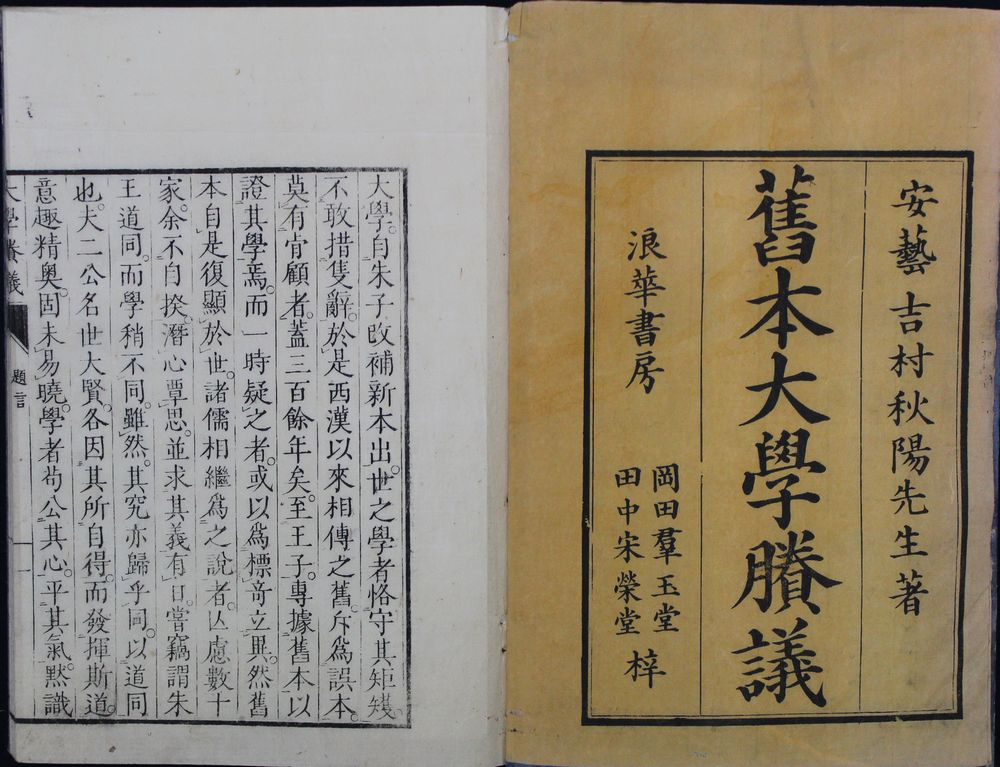 安藝吉村秋陽先生著
舊本大學賸議
浪華書房
岡田羣玉堂
田中宋榮堂
梓
大學。自朱子改補新本出。世之學者恪守其矩矱。
不敢措隻辭。於是西漢以來相傳之舊。斥爲誤本。
莫有肯顧者。蓋三百餘年矣。至王子。專據舊本以
證其學焉。而一時疑之者。或以爲標奇立異。然舊
本自是復顯於世。諸儒相繼爲之說者。亾慮數十
家。余不自揆。潛心覃思。並求其義有日。嘗竊謂朱
王道同。而學稍不同。雖然。其究亦歸乎同。以道同
也。夫二公名世大賢。各因其所自得。而發揮斯道。
意趣精奧。固未易曉。學者苟公其心。平其氣。黙識
大學賸議
題言
一